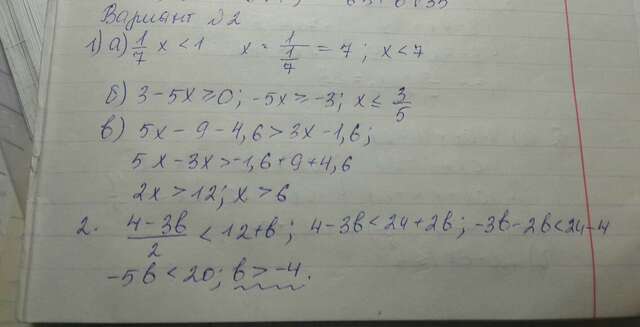 Вариант №2
1) а) 1/7 x < 1 x = 1/(1/7) = 7; x < 7
б) 3 - 5x ≥ 0; -5x ≥ -3; x ≤ 3/5
в) 5x - 9 - 4,6 > 3x - 1,6;
5x - 3x > -1,6 + 9 + 4,6
2x > 12; x > 6
2. (4 - 3b)/2 < 12 + b; 4 - 3b < 24 + 2b; -3b - 2b < 24 - 4
-5b < 20; b > -4.